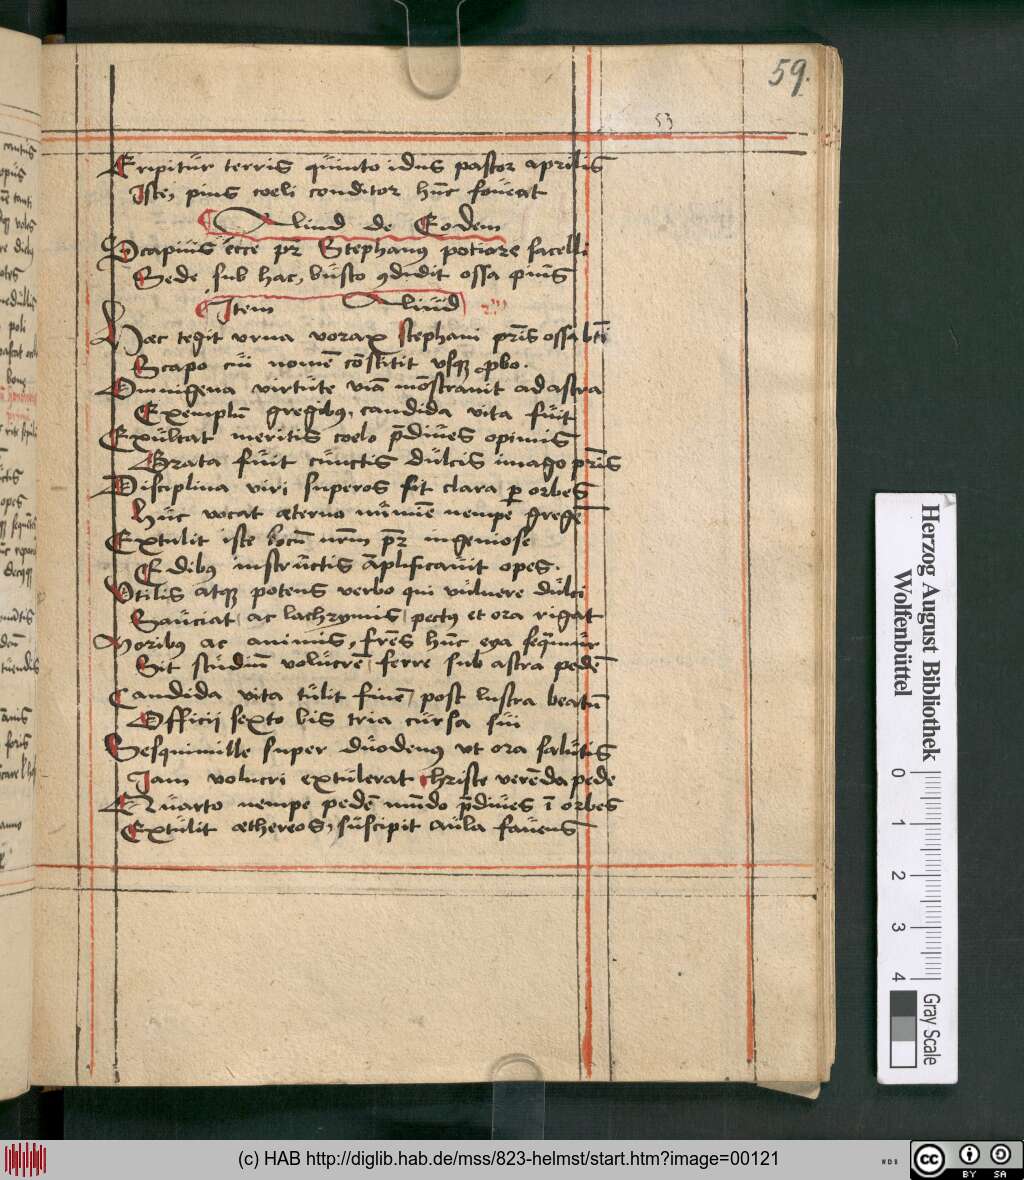 59.
53
Eripitur terris quinto idus pastor aprilis
Iste, pius coeli conditor hūc foveat
Aliud de Eodem
Scapius ecce pr̄ Stephanꝰ potiore sacelli
Sede sub hac, busto ꝯdidit ossa pius
Item Aliud
Haec tegit vrna vorax stephani pr̄is ossa bt̄i
Scapo cui nomē cōstitit vsqꝫ ꝓbo.
Omnigena virtute viā mōstravit ad astra
Exemplū gregibꝰ, candida vita fuit
Exultat meritis coelo p̄diues opimis
Grata fuit cunctis dulcis imago pr̄is
Disciplina viri superos fit clara ꝑ orbes
Huc vocat aeterno nūmīe nempe gregē
Extulit iste locū nrm̄ pr̄ ingeniose
Edibꝰ instructis āplificauit opes.
Vtilis atqꝫ potens verbo qui vulnere dulci
Sauciat, ac lachrymis, pectꝰ et ora rigat
Moribꝰ ac animis, fr̄es hūc ega seqͣmur
Sit studiū volucrē, ferre sub astra pedē
Candida vita tulit finē, post lustra beatū
Officij sexto bis tria cursa sui
Sesquimille super duodenꝰ vt ora salutis
Iam volucri extulerat christe verēda pede
Quarto nempe pedē mūdo p̄diues ī orbes
Extulit aethereos, suscipit aula fauens
Herzog August Bibliothek
Wolfenbüttel
0 1 2 3 4
Gray Scale
(c) HAB http://diglib.hab.de/mss/823-helmst/start.htm?image=00121
cc BY SA